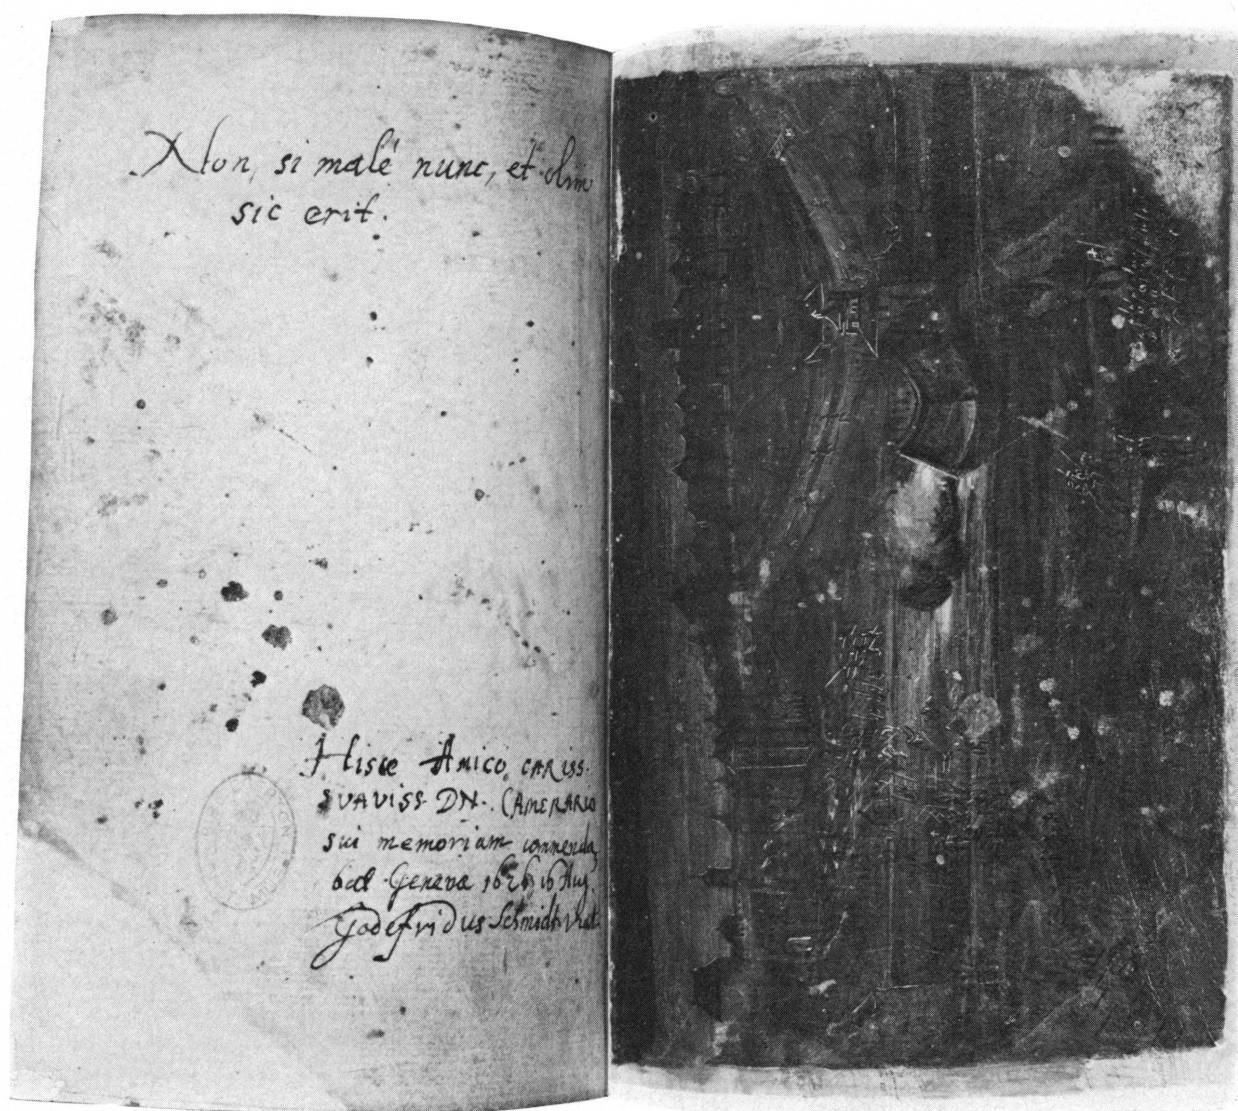 Non, si malè nunc, et olim
sic erit.
Hisce Amico cariss.
SVAVISS. DN. CAMERARIO
sui memoriam commenda
bat Genevæ 1626 16 Aug.
Godefridus Schmidt